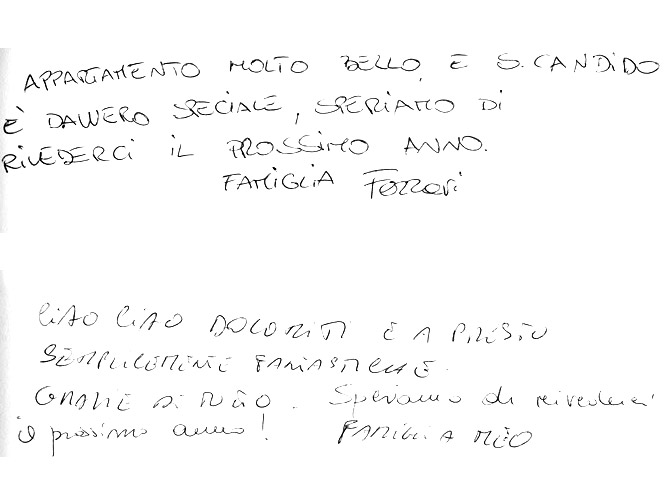 APPARTAMENTO MOLTO BELLO, E S. CANDIDO
È DAVVERO SPECIALE, SPERIAMO DI
RIVEDERCI IL PROSSIMO ANNO.
FAMIGLIA Ferrari
CIAO CIAO DOLOMITI E A PRESTO
SEMPLICEMENTE FANTASTICHE.
GRAZIE DI Speriamo di rivederci
il prossimo anno! FAMIGLIA MEO